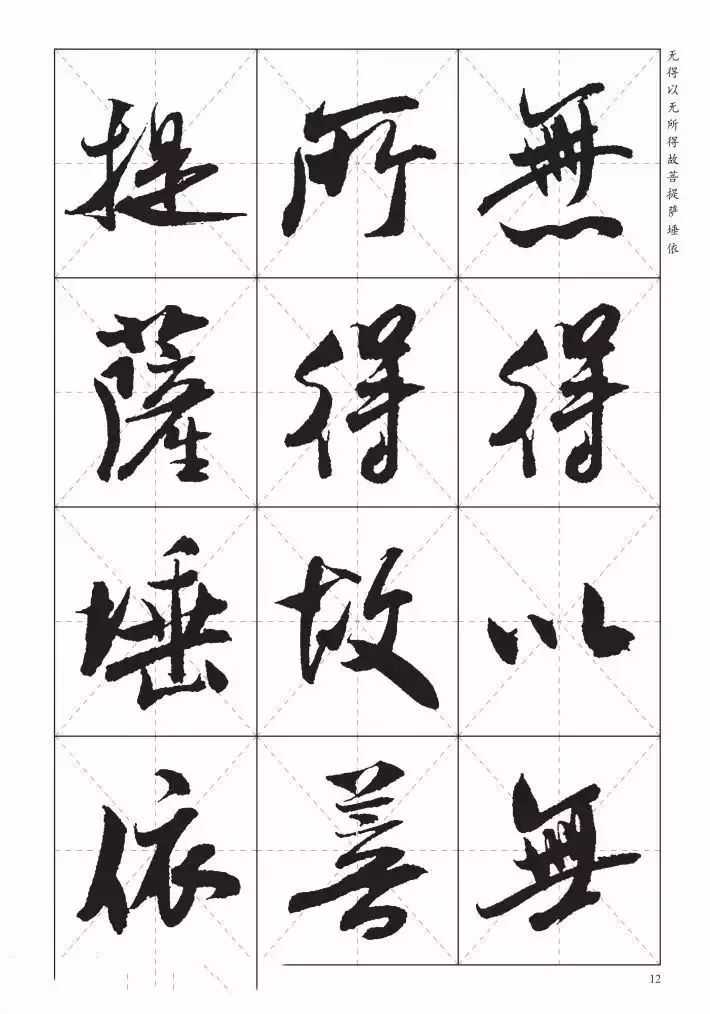 无得以无所得故菩提萨埵依
無得以無
所得故菩
提薩埵依
12